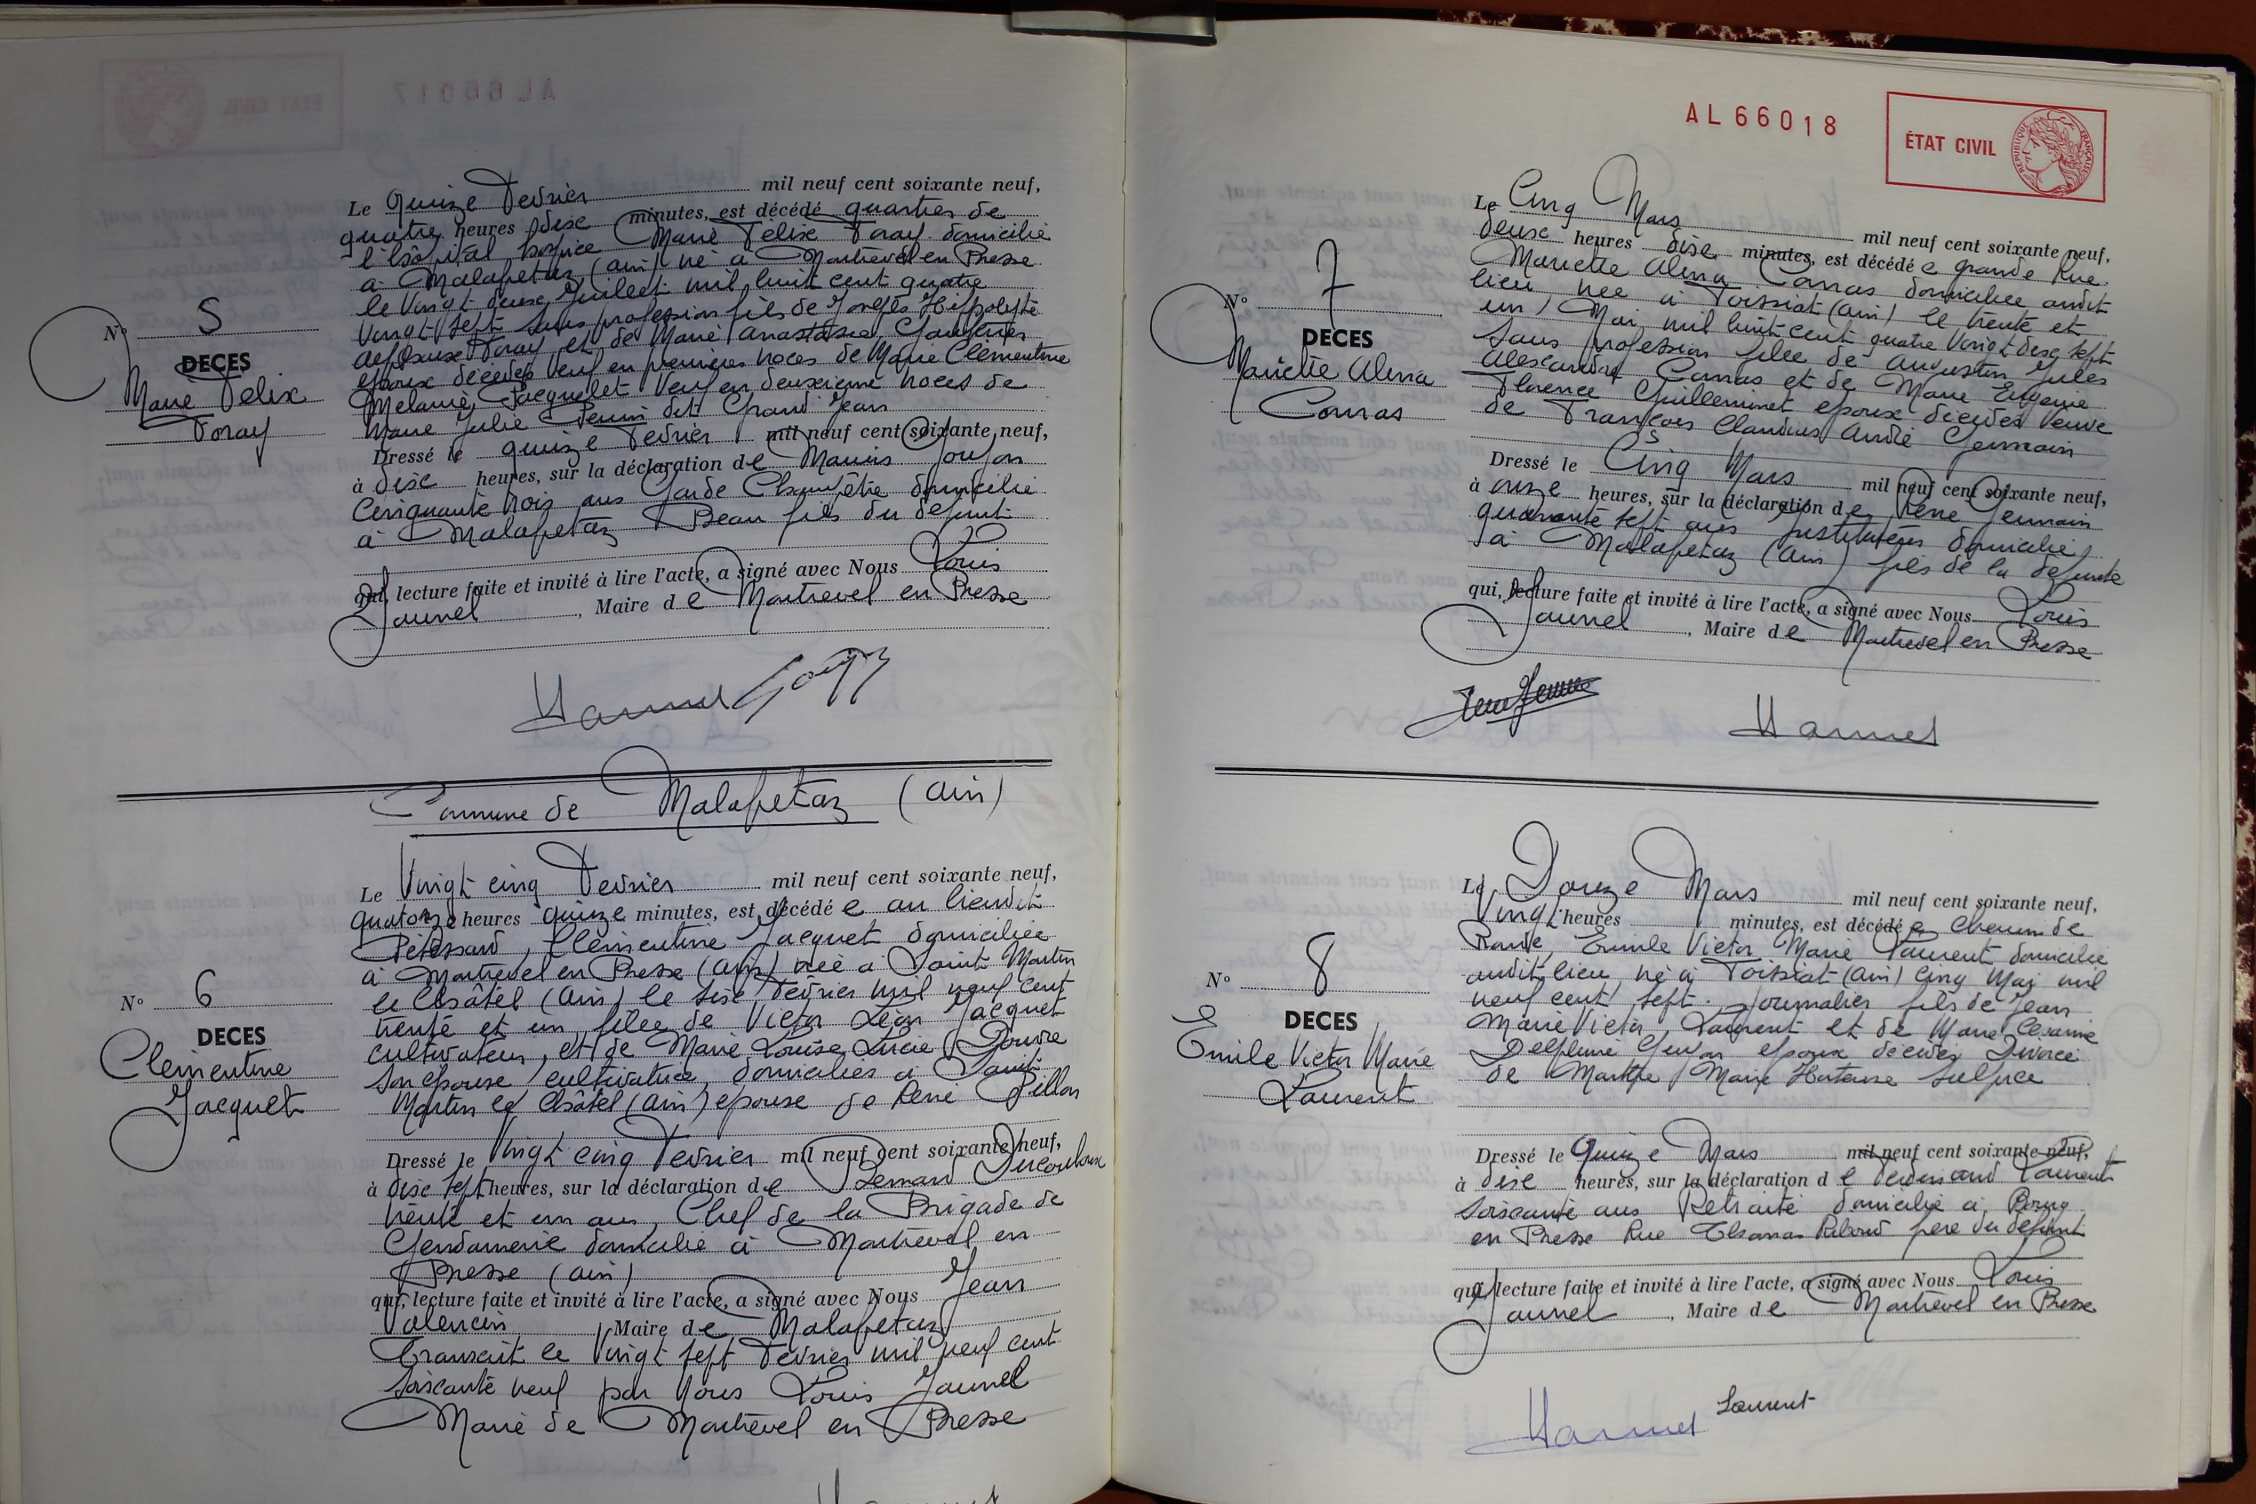 Le Quinze Fevrier mil neuf cent soixante neuf,
quatre heures dix minutes, est décédé quartier de
l'hôpital hospice Marie Félix Foray domicilié
à Malafretaz (ain) né à Montrevel en Bresse
le Vingt deux Juillet mil huit cent quatre
Vingt sept sans profession fils de Joseph Hippolyte
alphonse Foray et de Marie anastasie
époux décédés Veuf en premières noces de Marie Clémentine
Melanie Jacquelet Veuf en deuxieme noces de
Marie Julie Perrin dit Grand Jean
Dressé le quinze Fevrier mil neuf cent soixante neuf,
à dix heures, sur la déclaration de Marius Goujon
Cinquante trois ans Garde Champêtre domicilié
à Malafretaz Beau fils du défunt
qui, lecture faite et invité à lire l'acte, a signé avec Nous Louis
Jaunel, Maire de Montrevel en Bresse
N° 5
DECES
Marie Felix
Foray
Commune de Malafretaz (ain)
Le Vingt cinq Fevrier mil neuf cent soixante neuf,
quatorze heures quinze minutes, est décédé e au lieudit
Clémentine Jacquet domiciliée
à Montrevel en Bresse (ain) née à Saint Martin
le Châtel (ain) le six Fevrier mil neuf cent
trente et un fille de Victor Léon Jacquet
cultivateur, et de Marie Louise Lucie Douvre
son épouse cultivatrice, domiciliés à Saint
Martin le Châtel (ain) épouse de René Pillon
Dressé le Vingt cinq Fevrier mil neuf cent soixante neuf,
à dix sept heures, sur la déclaration de Bernard
trente et un ans, Chef de la Brigade de
Gendarmerie domicilié à Montrevel en
Bresse (ain)
qui, lecture faite et invité à lire l'acte, a signé avec Nous Jean
Valencin, Maire de Malafretaz
Transcrit le Vingt sept Fevrier mil neuf cent
soixante neuf par Nous Louis Jaunel
Maire de Montrevel en Bresse
N° 6
DECES
Clementine
Jacquet
AL66018
ÉTAT CIVIL
RÉPUBLIQUE FRANÇAISE
Le Cinq Mars mil neuf cent soixante neuf,
deux heures dix minutes, est décédé e grande Rue
Mariette Alma Conras domiciliée audit
lieu née à Foissiat (ain) le trente et
un Mai mil huit cent quatre Vingt dix sept
sans profession fille de Augustin Jules
Alexandre Conras et de Marie Eugenie
Florence Guilleminet époux décédés Veuve
de François Claudius André Germain
Dressé le Cinq Mars mil neuf cent soixante neuf,
à onze heures, sur la déclaration de René Germain
quarante sept ans Instituteur domicilié
à Malafretaz (ain) fils de la defunte
qui, lecture faite et invité à lire l'acte, a signé avec Nous Louis
Jaunel, Maire de Montrevel en Bresse
N° 7
DECES
Mariette Alma
Conras
Le Douze Mars mil neuf cent soixante neuf,
Vingt heures minutes, est décédé e Chemin de
Ronde, Emile Victor Marie Laurent domicilié
audit lieu, né à Foissiat (ain) cinq Mai mil
neuf cent sept. Journalier fils de Jean
Marie Victor Laurent et de Marie Césarine
Delphine Guyon époux décédés Divorcé
de Marthe Marie Hortense Sulpice
Dressé le Quinze Mars mil neuf cent soixante neuf,
à dix heures, sur la déclaration de Ferdinand Laurent
soixante ans Retraité domicilié à Bourg
en Bresse Rue Thomas Riboud frere du défunt
qui, lecture faite et invité à lire l'acte, a signé avec Nous Louis
Jaunel, Maire de Montrevel en Bresse
Laurent
N° 8
DECES
Emile Victor Marie
Laurent